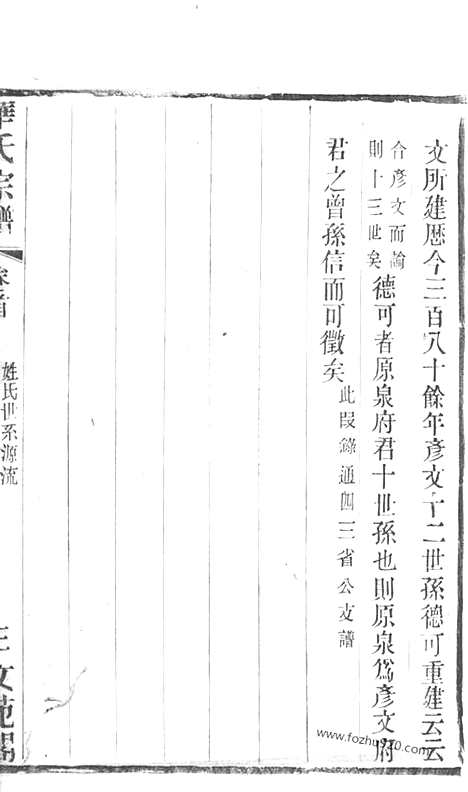 文所建歷今三百八十餘年彥文十二世孫德可重建云云
合彥文而論
則十三世矣
德可者原泉府君十世孫也則原泉爲彥文府
君之曾孫信而可徵矣
此段錄通四三省公支譜
氏宗譜
卷首
姓氏世系源流
三
文苑閣
www.fozhu920.com